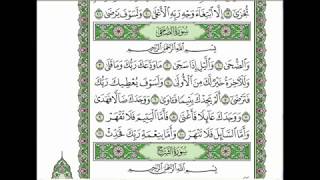 تُجْزَىٰ إِلَّا ٱبْتِغَآءَ وَجْهِ رَبِّهِ ٱلْأَعْلَىٰ وَلَسَوْفَ يَرْضَىٰ
سُورَةُ الضُّحَىٰ
بِسْمِ ٱللَّهِ ٱلرَّحْمَٰنِ ٱلرَّحِيمِ
وَٱلضُّحَىٰ وَٱلَّيْلِ إِذَا سَجَىٰ مَا وَدَّعَكَ رَبُّكَ وَمَا قَلَىٰ
وَلَلْءَاخِرَةُ خَيْرٌ لَّكَ مِنَ ٱلْأُولَىٰ وَلَسَوْفَ يُعْطِيكَ رَبُّكَ
فَتَرْضَىٰ أَلَمْ يَجِدْكَ يَتِيمًا فَـَٔاوَىٰ وَوَجَدَكَ ضَآلًّا فَهَدَىٰ
وَوَجَدَكَ عَآئِلًا فَأَغْنَىٰ فَأَمَّا ٱلْيَتِيمَ فَلَا تَقْهَرْ
وَأَمَّا ٱلسَّآئِلَ فَلَا تَنْهَرْ وَأَمَّا بِنِعْمَةِ رَبِّكَ فَحَدِّثْ
سُورَةُ الشَّرْحِ
بِسْمِ ٱللَّهِ ٱلرَّحْمَٰنِ ٱلرَّحِيمِ